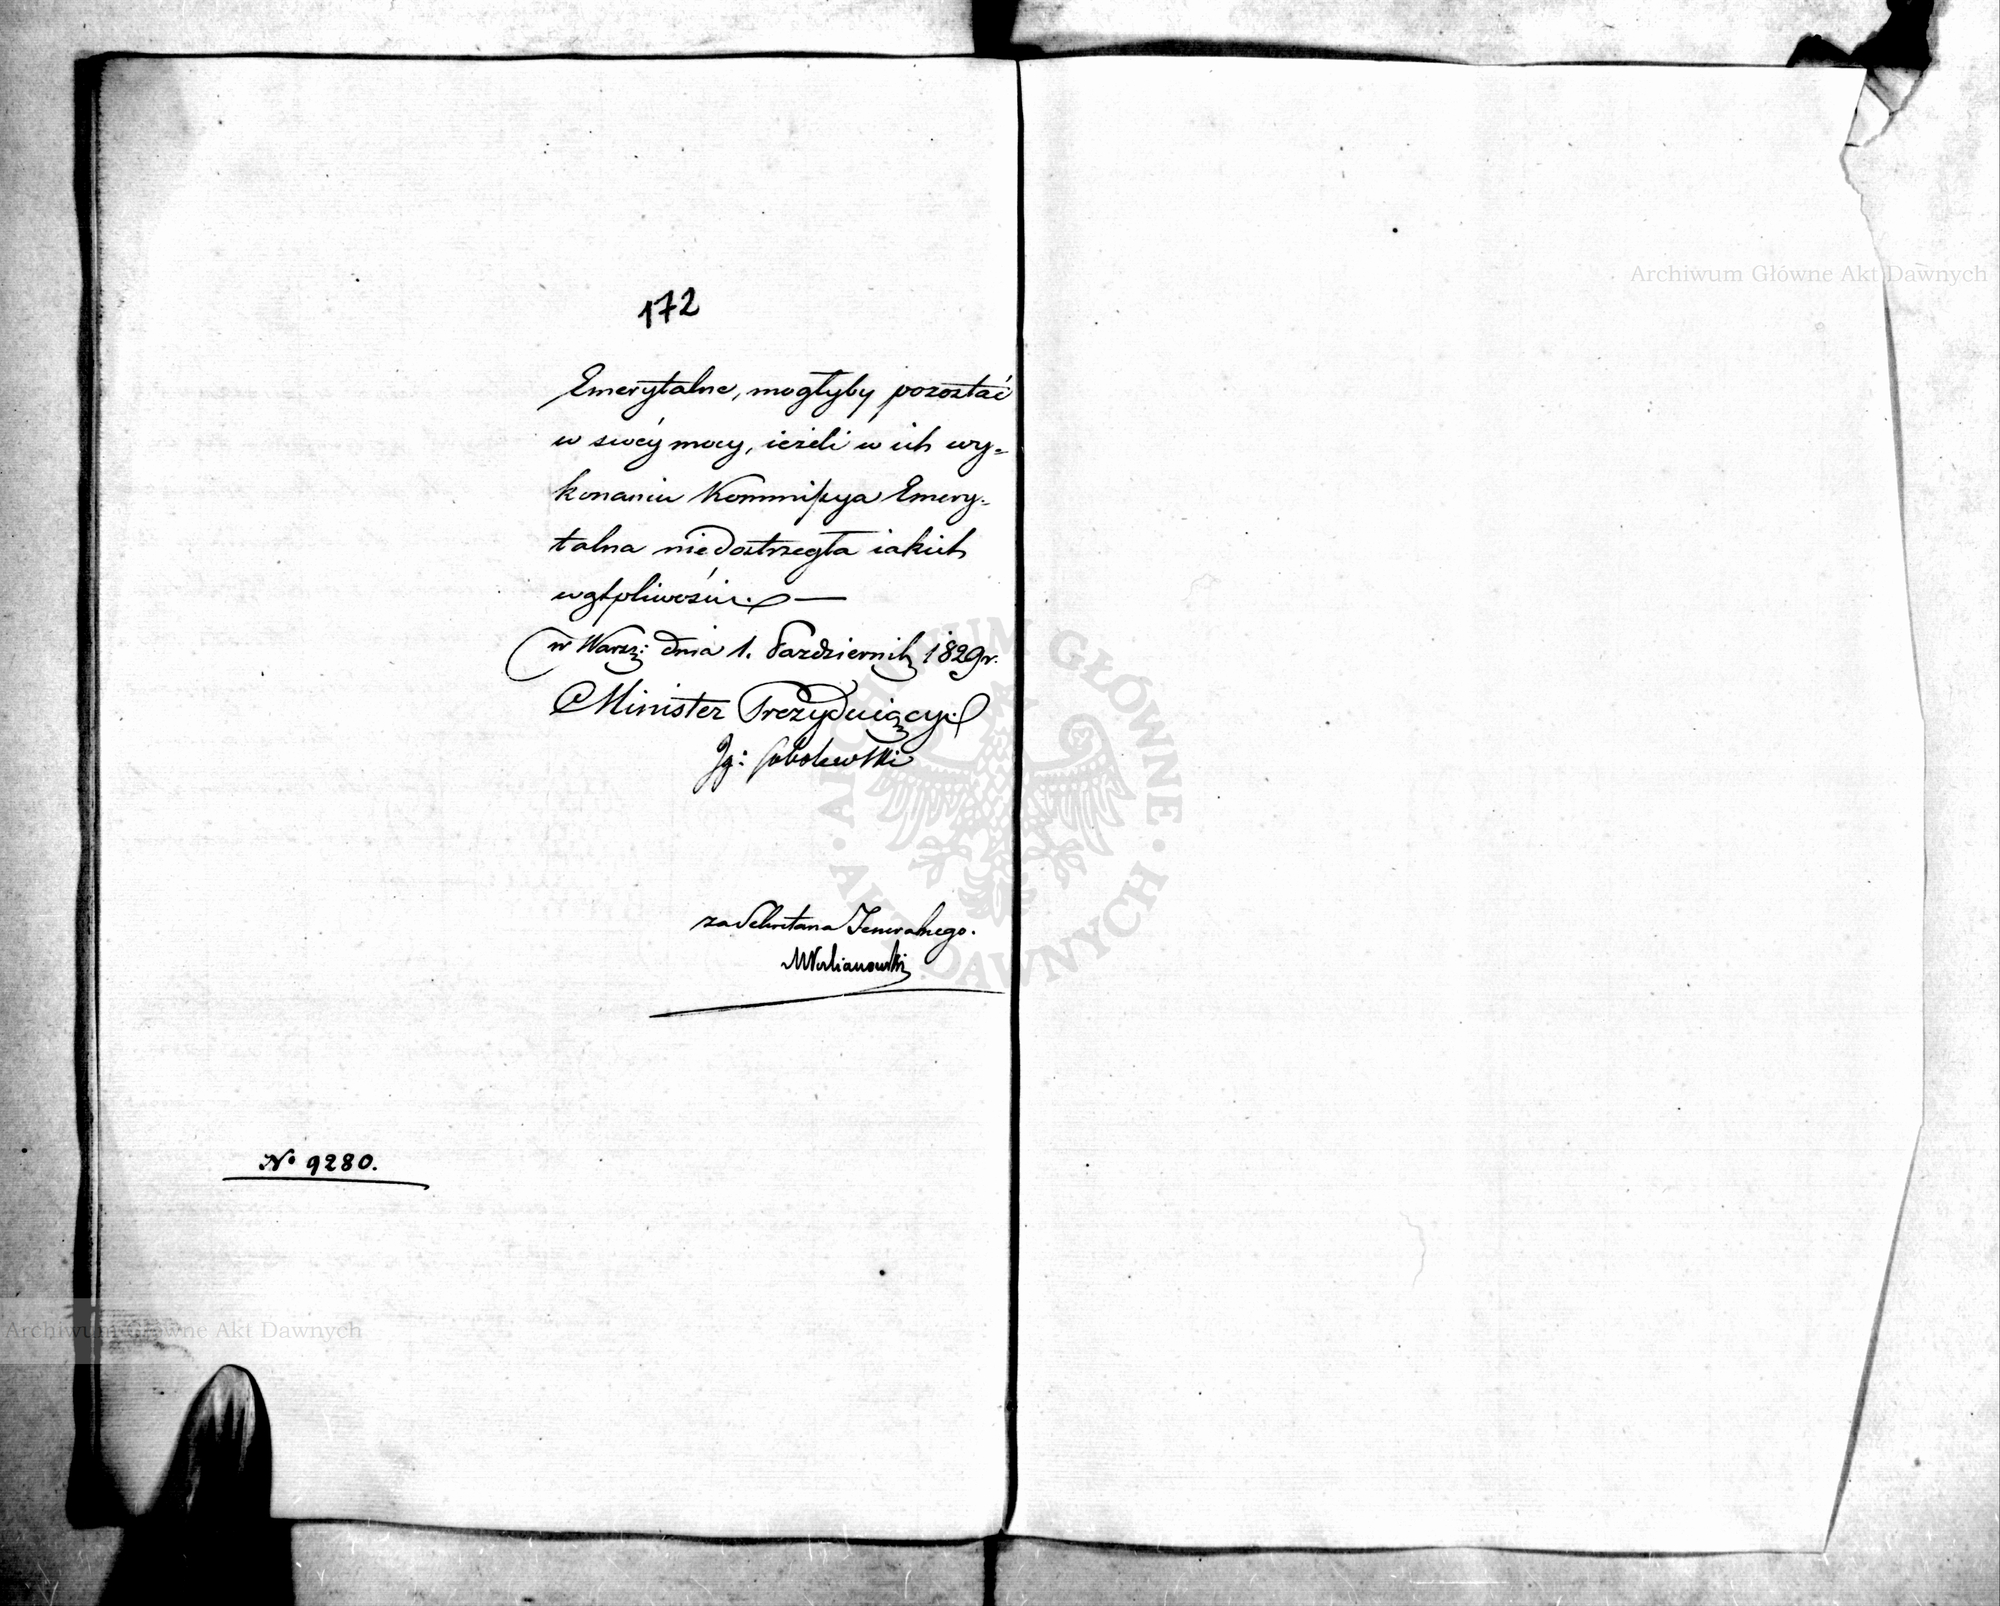 172
Emerytalne, mogłyby pozostać
w swéy mocy, ieżeli w ich wy=
konaniu Kommissya Emery=
talna niedostrzegła iakich
wątpliwości. —
w Warsz: dnia 1. Październik 1829 r.
Minister Prezyduiący.
Ig: Sobolewski
za Sekretarza Jeneralnego.
N° 9280.
Archiwum Główne Akt Dawnych
Archiwum Główne Akt Dawnych
ARCHIWUM GŁÓWNE · AKT DAWNYCH ·